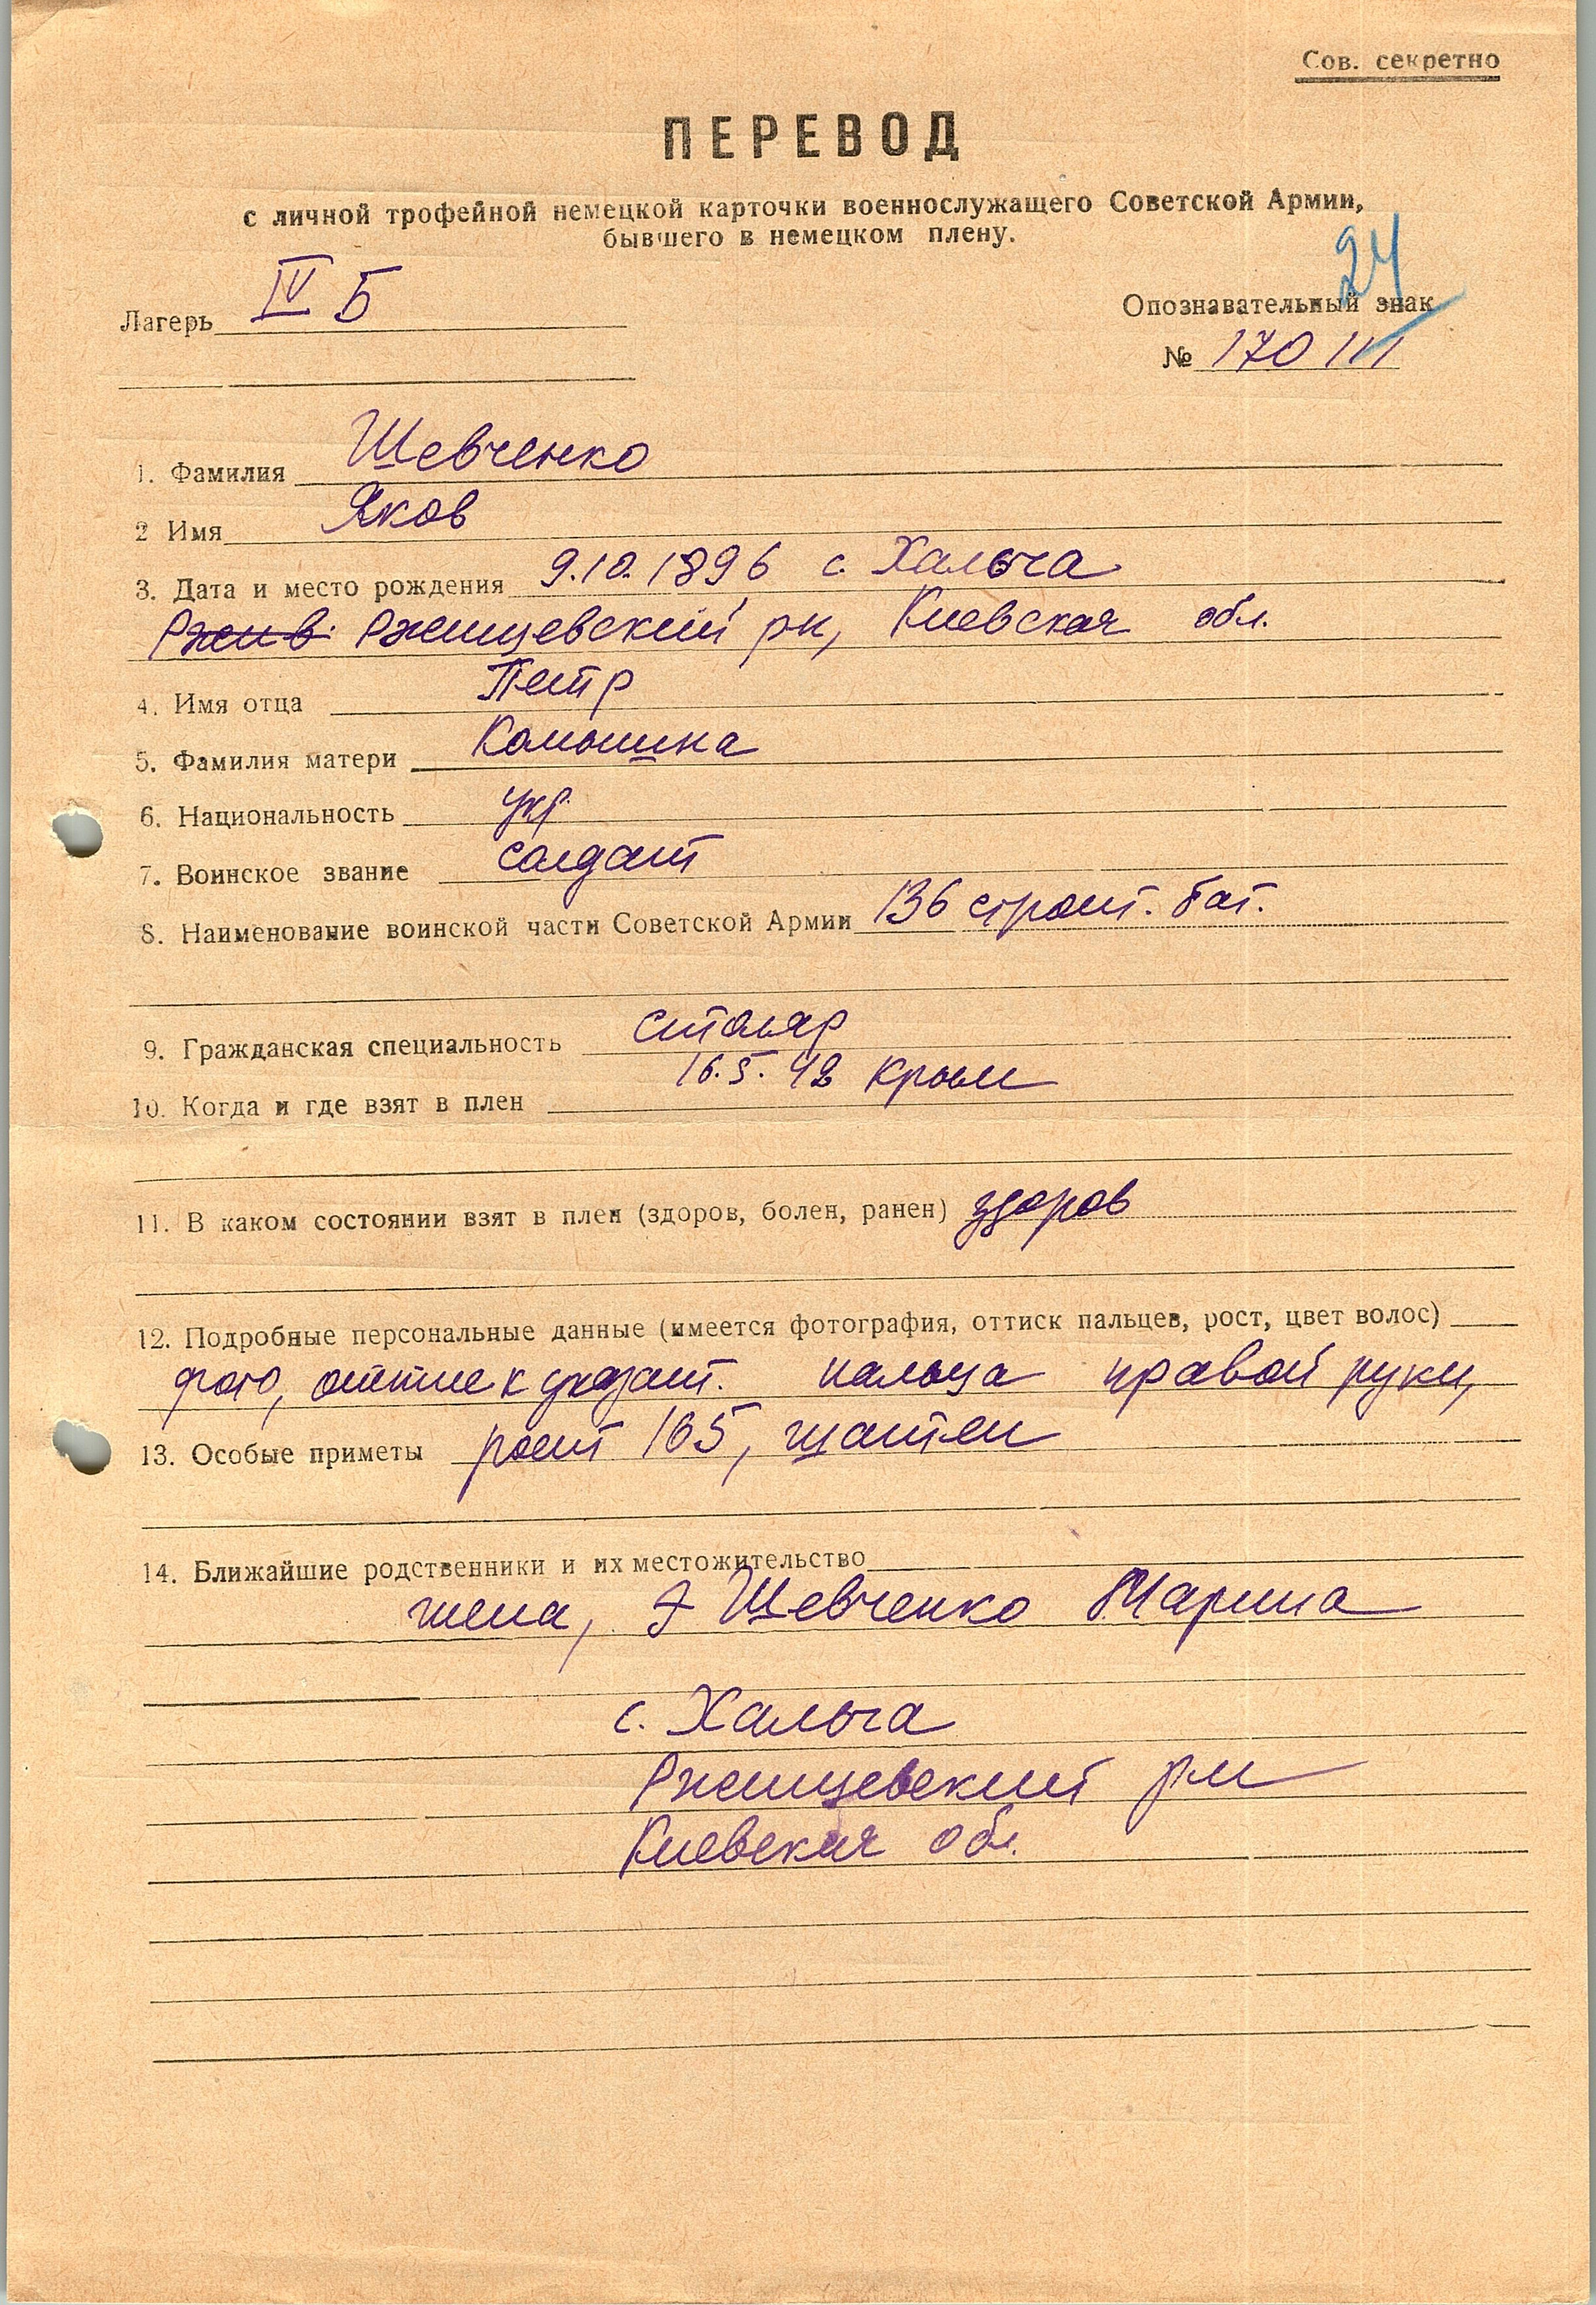 Сов. секретно
ПЕРЕВОД
с личной трофейной немецкой карточки военнослужащего Советской Армии,
бывшего в немецком плену.
24
Лагерь IV Б
Опознавательный знак
№ 170111
1. Фамилия Шевченко
2 Имя Яков
3. Дата и место рождения 9.10.1896 с. Хальча
Ржищевский рн, Киевская обл.
4. Имя отца Петр
5. Фамилия матери
6. Национальность укр.
7. Воинское звание солдат
8. Наименование воинской части Советской Армии 136 строит. бат.
9. Гражданская специальность столяр
10. Когда и где взят в плен 16.5.42 Крым
11. В каком состоянии взят в плен (здоров, болен, ранен) здоров
12. Подробные персональные данные (имеется фотография, оттиск пальцев, рост, цвет волос)
фото, оттиск указат. пальца правой руки,
13. Особые приметы рост 165, шатен
14. Ближайшие родственники и их местожительство
жена, Шевченко Марина
с. Хальча
Ржищевский рн
Киевская обл.